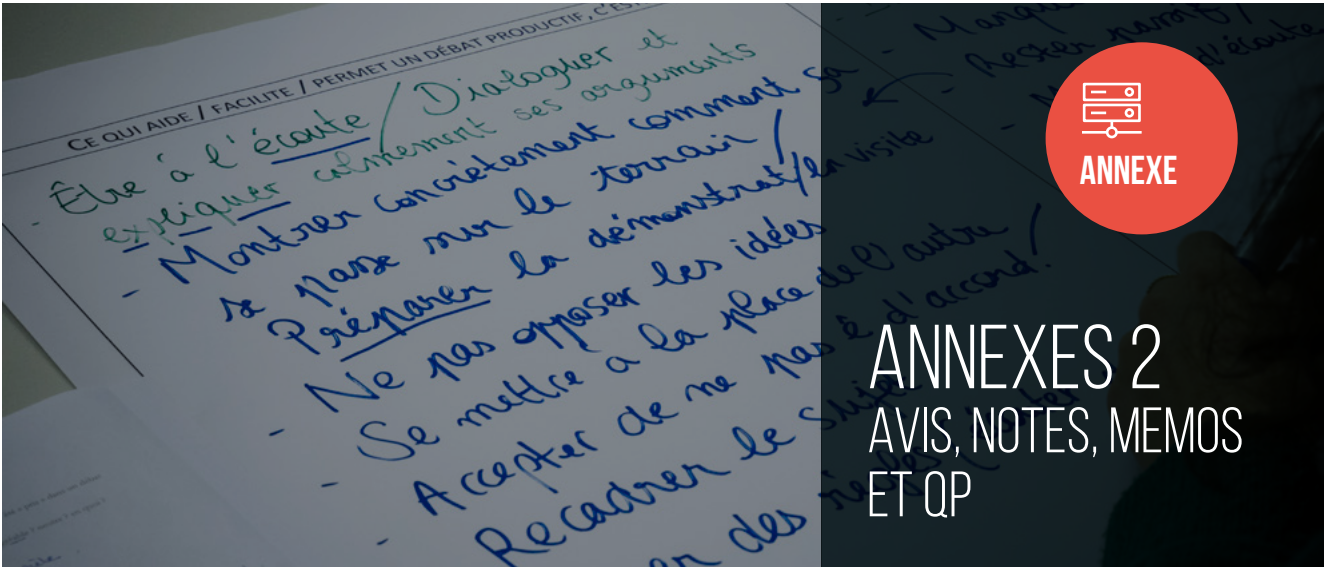 CE QUI AIDE / FACILITE / PERMET UN DÉBAT PRODUCTIF, C'ES
- Être à l'écoute / Dialoguer et
expliquer calmement ses arguments
- Montrer concrètement comment ça
se passe sur le terrain /
Préparer la démonstrat/la visite
- Ne pas opposer les idées
- Se mettre à la place de l'autre /
- Accepter de ne pas ê d'accord!
Recadrer le sujet
des règles
- Manqu
- Rester passif /
d'écoute
ANNEXE
ANNEXES 2
AVIS, NOTES, MEMOS
ET QP